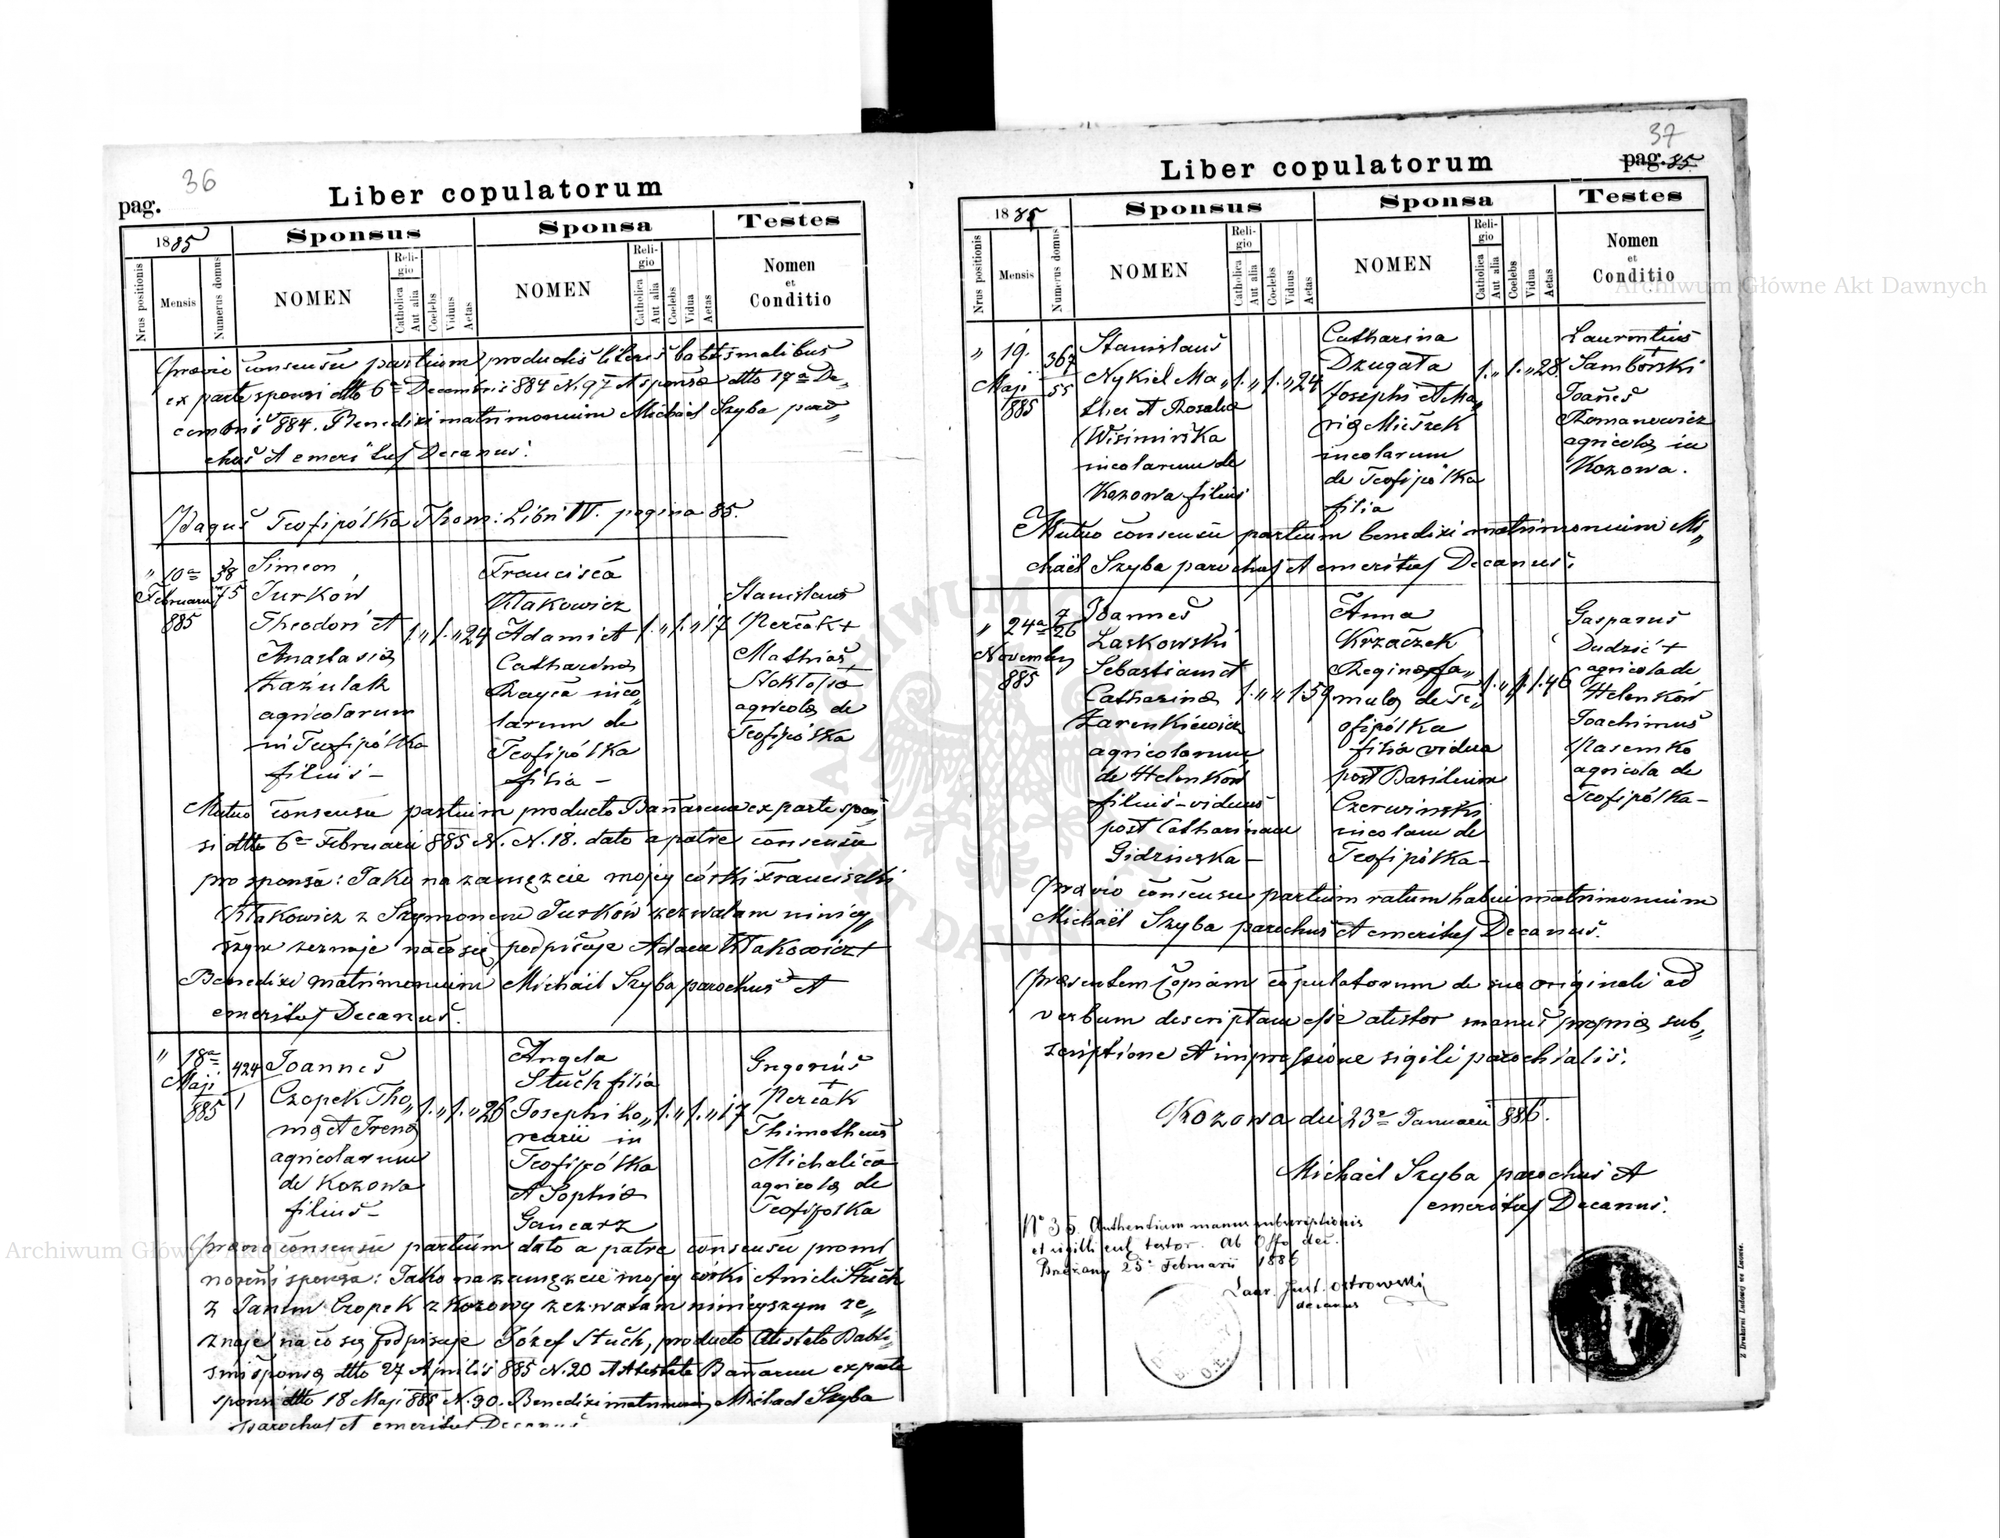 36
pag.
Liber copulatorum
1885
Sponsus
Sponsa
Testes
Nrus positionis
Mensis
Numerus domus
NOMEN
Religio
Catholica
Aut alia
Coelebs
Viduus
Aetas
NOMEN
Religio
Catholica
Aut alia
Coelebs
Vidua
Aetas
Nomen
et
Conditio
Praevio consensu partium productis literis babtismalibus
ex parte sponsi dtto 6a Decembris 884 N. 97 et sponsae dtto 17a De„
cembris 884. Benedixi matrimonium Michaël Szyba paro„
chus et emeritus Decanus.
Pagus Teofipólka Thom: Libri IV. pagina 85.
„ 10a
Februarii
885
38
75
Simeon
Jurków
Theodori et
Anastasia
Łaziulak
agricolarum
in Teofipólka
filius –
1 „ 1 „ 24
Francisca
Kłakowicz
Adami et
Catharina
Rayca inco„
larum de
Teofipólka
filia –
1 „ 1 „ 17
Stanislaus
Perčak +
Mathias
Stokłosa
agricolae de
Teofipólka
Mutuo consensu partium producto Bannarum ex parte spon„
si dtto 6a Februarii 885 N. N. 18. dato a patre consensu
pro sponsa: Jako na zamęzcie mojej córki Franciszki
Kłakowicz z Szymonem Jurków zezwalam niniej„
szym zeznaje na co się podpisuje Adam Kłakowicz +
Benedixi matrimonium Michaël Szyba parochus et
emeritus Decanus.
„ 18a
Maji
885
424
1
Joannes
Czopek Tho„
ma et Irena
agricolarum
de Kozowa
filius –
1 „ 1 „ 26
Angela
Stuch filia
Josephi ho„
rearii in
Teofipólka
et Sophia
Gancarz
1 „ 1 „ 17
Gregorius
+
Perčak
Thimotheus
Michalica
agricolae de
Teofipolka
Praevio consensu partium dato a patre consensu pro mi
norenni sponsa: Jako na zamęzcie mojej córki Anieli Stuch
z Janem Czopek z Kozowy zezwalam niniejszym ze„
znaje na co się podpisuje Józef Stuch, producto Attestato Babti„
smi sponsa dtto 27 Aprilis 885 N. 20 et Attestato Bannarum ex parte
sponsi dtto 18 Maji 885 N. 90. Benedixi matrimonium Michael Szyba
parochus et emeritus Decanus
37
pag. 85.
Liber copulatorum
1885
Sponsus
Sponsa
Testes
Nrus positionis
Mensis
Numerus domus
NOMEN
Religio
Catholica
Aut alia
Coelebs
Viduus
Aetas
NOMEN
Religio
Catholica
Aut alia
Coelebs
Vidua
Aetas
Nomen
et
Conditio
„ 19.
Maji
1885
367
55
Stanislaus
Nykiel Ma„
thei et Rosalia
Wisimirska
incolarum de
Kozowa filius
1 „ 1 „ 24
Catharina
Dzugała
Josephi et Ma„
ria Mirzek
incolarum
de Teofipólka
filia
1 „ 1 „ 28
Laurentius
+
Samborski
Joannes
Romanowicz
agricolae in
Kozowa.
Mutuo consensu partium benedixi matrimonium Mi„
chaël Szyba parochus et emeritus Decanus.
„ 24a
Novembris
885
7
26
Joannes
Laskowski
Sebastiani et
Catharina
Zarenkiewicz
agricolarum
de Helenków
filius – viduus
post Catharinam
Gidzinska –
1 „ „ 1. 59
Anna
Krzaczek
Regina fa„
mula de Te„
ofipólka
filia vidua
post Basilium
Czerwinski
incolam de
Teofipólka –
1 „ „ 1. 46
Gasparus
Dudzić +
agricola de
Helenków
Joachimus
Pasemko
agricola de
Teofipólka –
Praevio consensu partium ratum habui matrimonium
Michaël Szyba parochus et emeritus Decanus.
Praesentem Copiam copulatorum de suo originali ad
verbum descriptam esse atestor manus propria sub„
scriptione et impressione sigili parochialis.
Kozowa die 23a Januarii 886.
Michaël Szyba parochus et
emeritus Decanus.
No 35. Authenticam manus subscriptionis
et sigilli esse testor. Ab Offo dec.
Brzezany 25a Februarii 1886
Laur. Just. Ostrowski
decanus
Z Drukarni Ludowej we Lwowie.
Archiwum Główne Akt Dawnych
Archiwum Główne Akt Dawnych